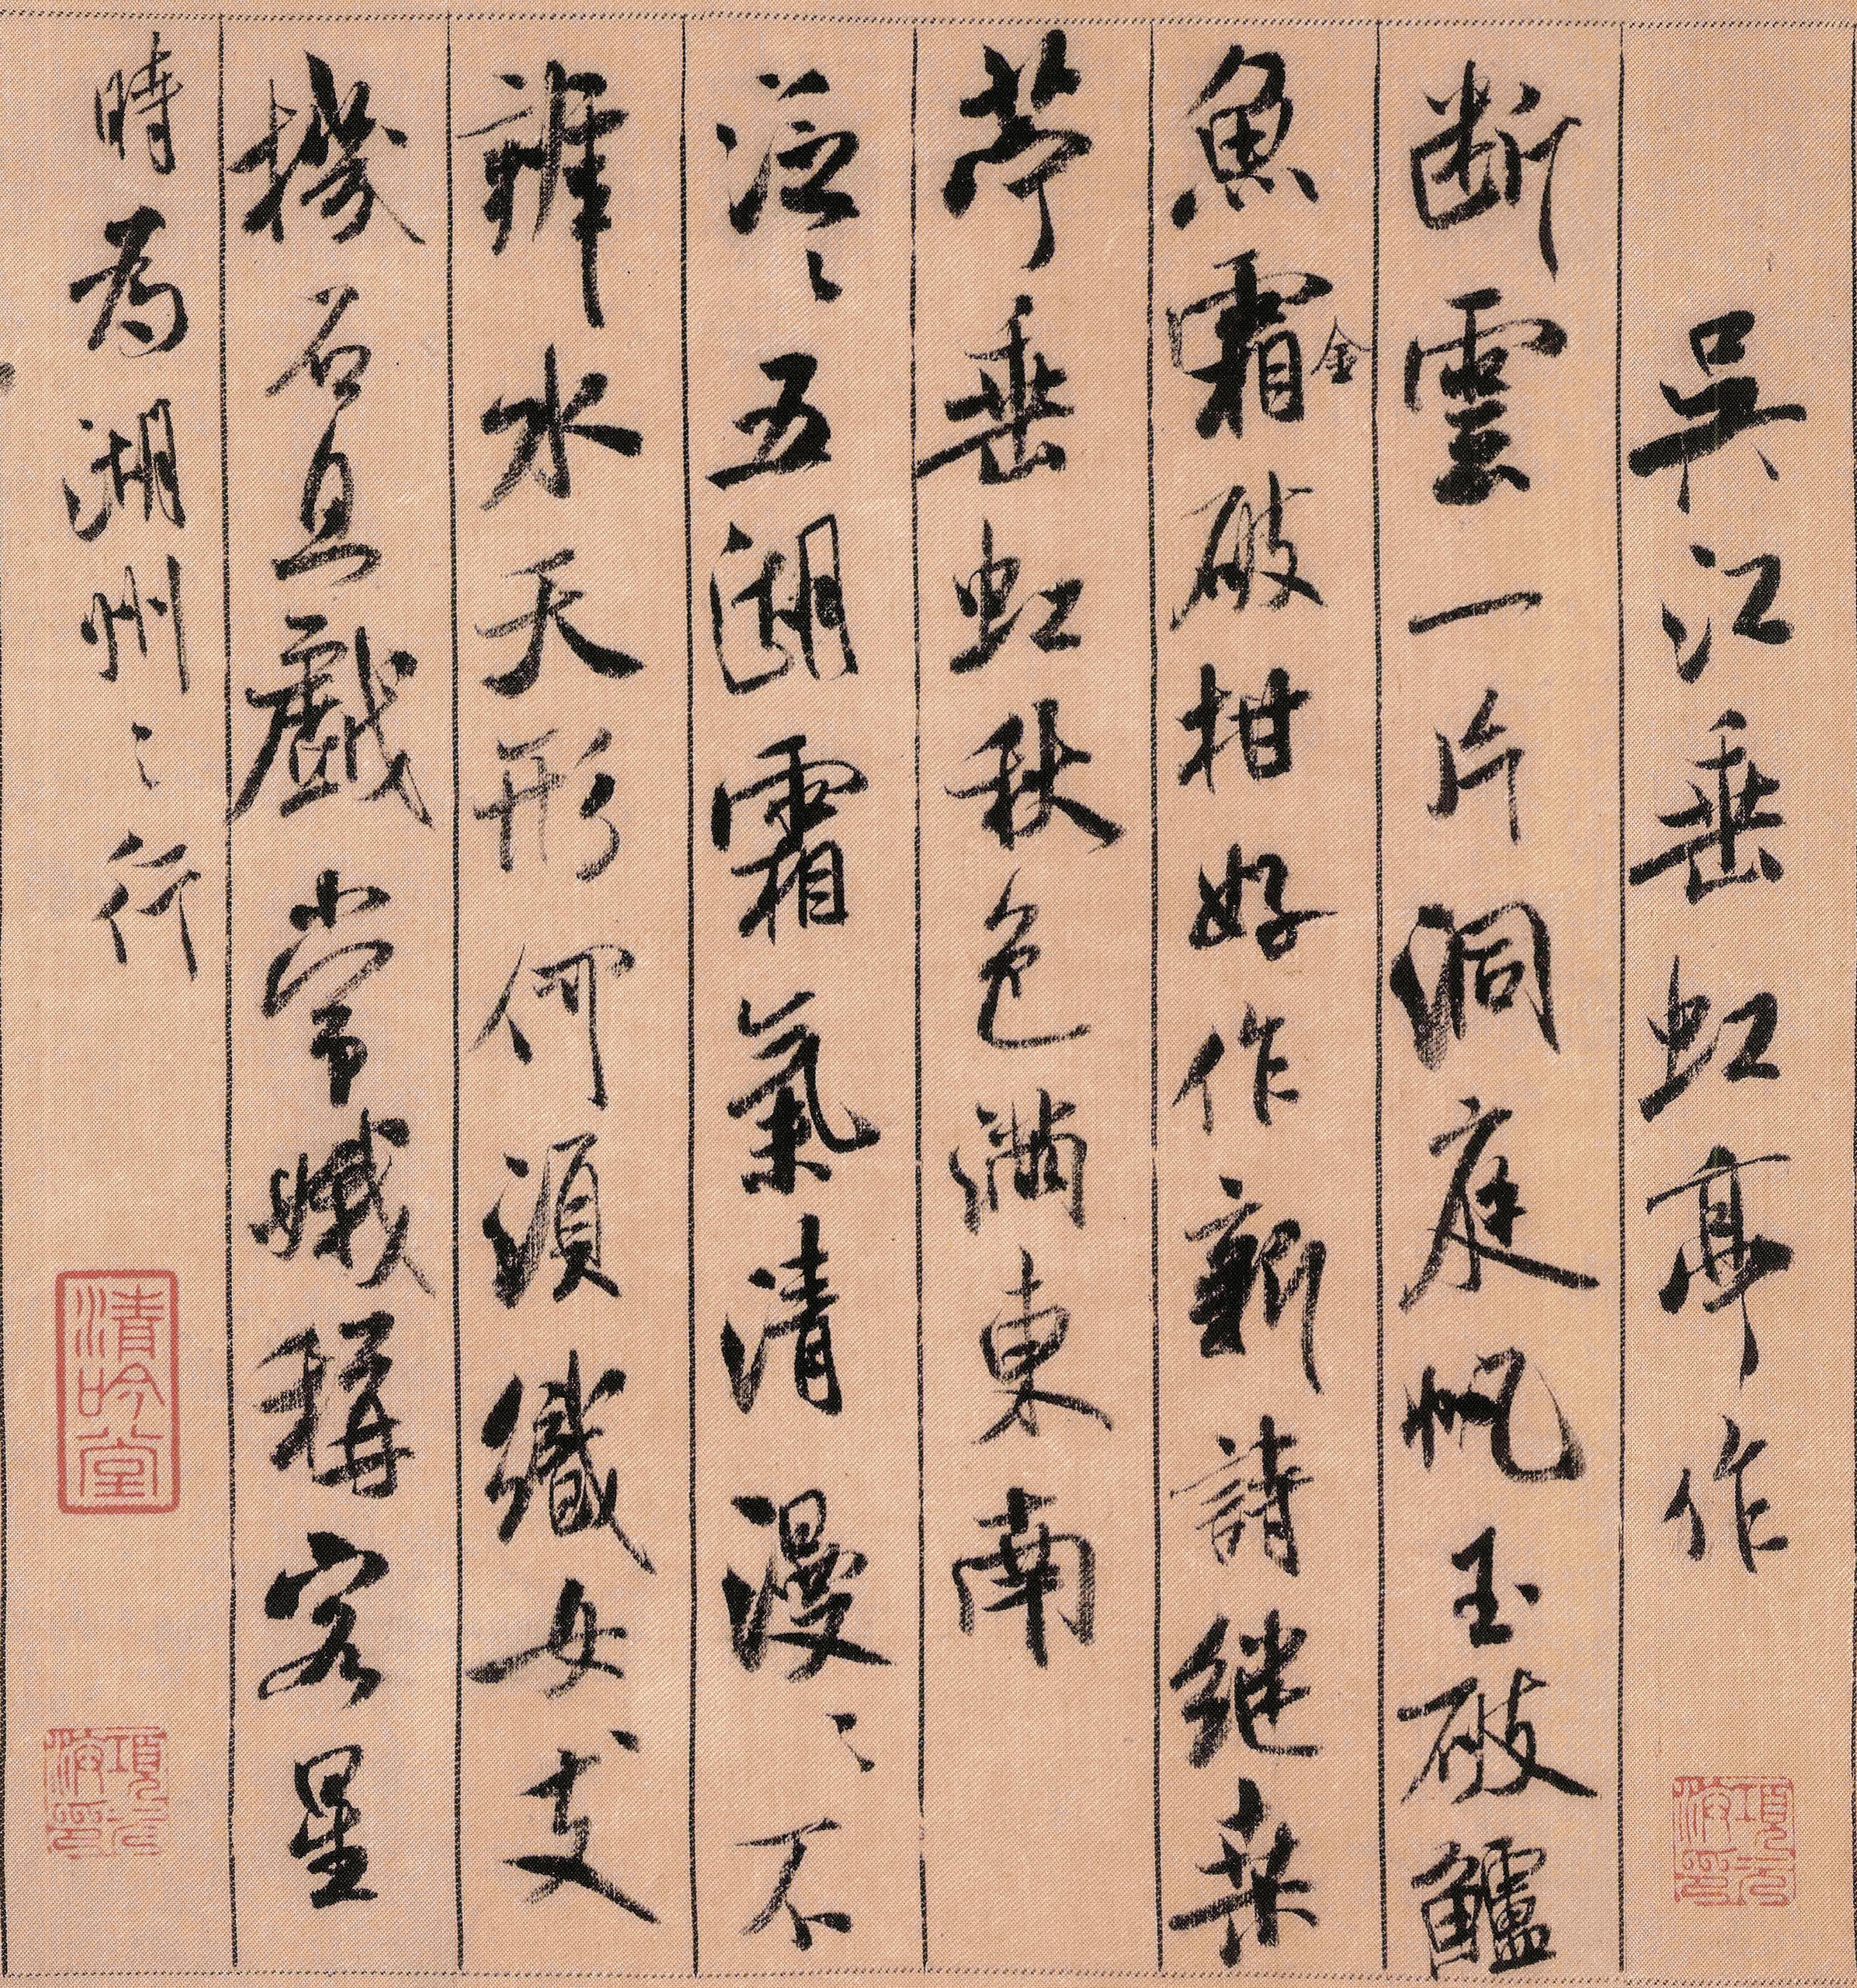 吳江垂虹亭作
項元汴印
断雲一片洞庭帆玉破鱸
魚霜破柑好作新詩継桑
金
苧垂虹秋色滿東南
泛〻五湖霜氣清漫〻不
辨水天形何須織女支
機石且戲常娥稱客星
時為湖州之行
清吟堂
項元汴印